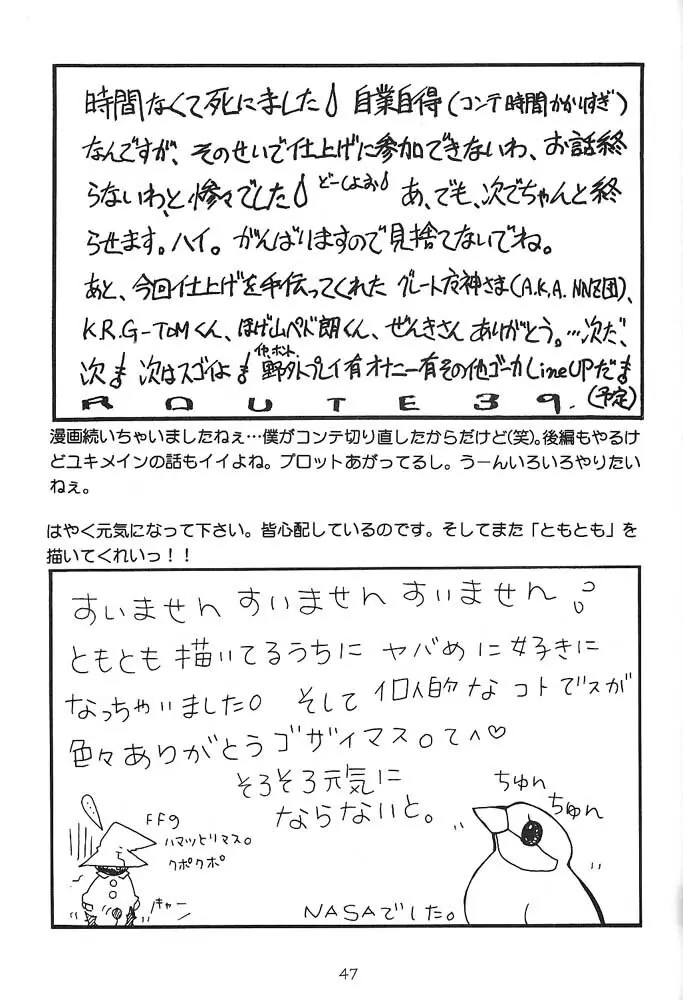 時間なくて死にました 自業自得(コンテ時間かかりすぎ)
なんですが、そのせいで仕上げに参加できないわ、お話終
らないわ、と惨々でした どーしよお あ、でも、次でちゃんと終
らせます。ハイ。がんばりますので見捨てないでね。
あと、今回仕上げを手伝ってくれた グレート方神さま(A.K.A. NNZ団)、
K.R.G-TOMくん、ほげ山ペド朗くん、ぜんきさん ありがとう。…次だ、
次も 次はスゴイよ 他、ホント。
野外プレイ有オナニー有その他ゴーカLineUPだ
(予定)
ROUTE39.
漫画続いちゃいましたねぇ…僕がコンテ切り直したからだけど(笑)。後編もやるけ
どユキメインの話もイイよね。プロットあがってるし。うーんいろいろやりたい
ねぇ。
はやく元気になって下さい。皆心配しているのです。そしてまた「ともとも」を
描いてくれいっ!!
すいません すいません すいません
ともとも描いてるうちに ヤバめに好きに
なっちゃいました。 そして 個人的な コトですが
色々ありがとうゴザイマス。て^♡
そろそろ元気に
ならないと。
FFの
ハマッとリマス。
クポクポ
キャー
ちゅん
ちゅん
NASAでした。
47